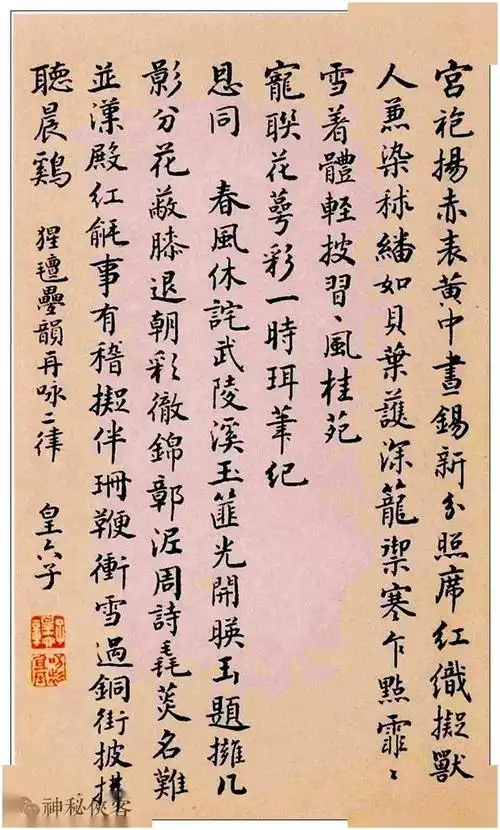 宮袍揚赤表黃中晝錫新分照席紅織擬獸
人兼染秫繙如貝葉護深籠禦寒乍點霏〻
雪著體輕披習〻風桂苑
寵聯花萼彩一時珥筆紀
恩同 春風休詫武陵溪玉篚光開暎玉題擁几
影分花蔽膝退朝彩徹錦鄣泥周詩毳菼名難
並漢殿紅毹事有稽擬伴珊鞭衝雪過銅街披拂
聽晨鷄 猩氊疊韻再咏二律 皇六子
神秘俠客